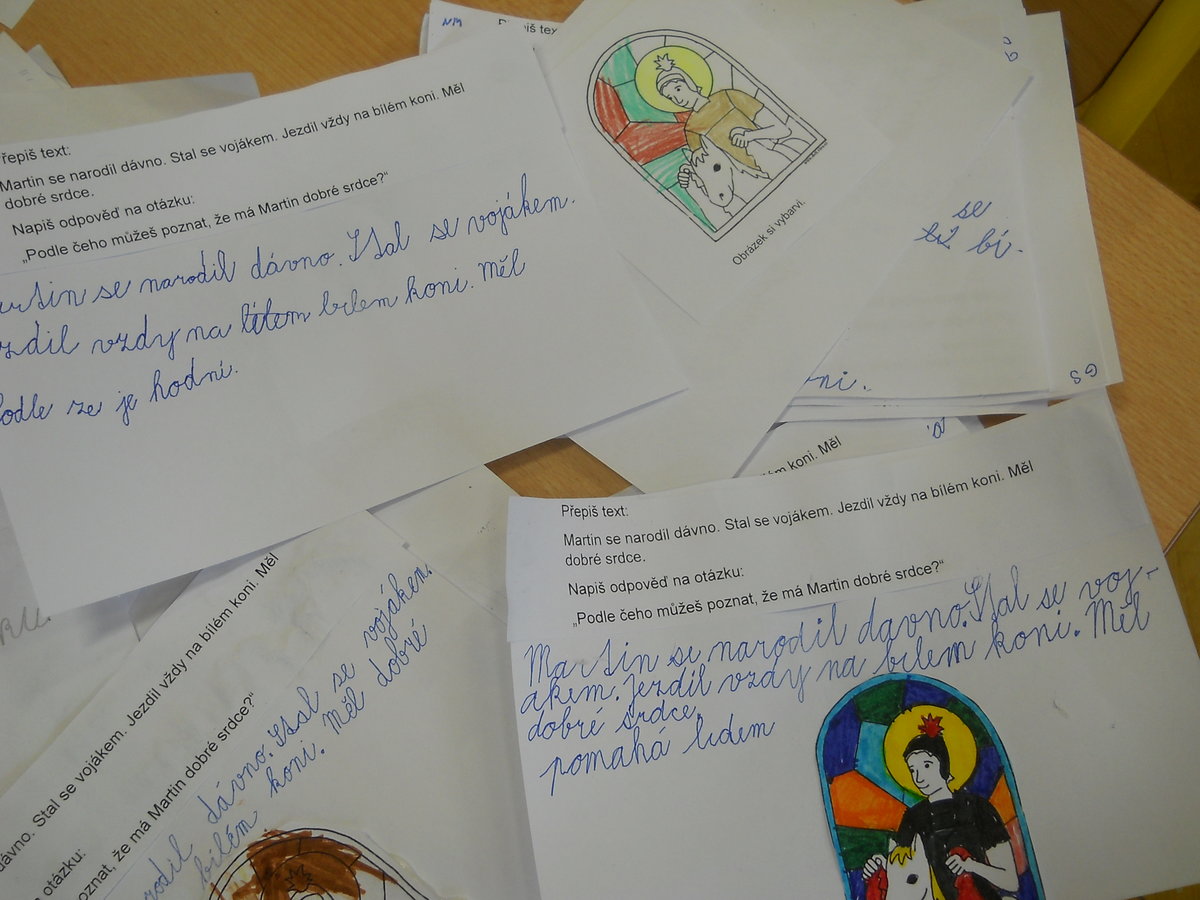 řepiš text:
Martin se narodil dávno. Stal se vojákem. Jezdil vždy na bílém koni. Měl
dobré srdce.
Napiš odpověď na otázku:
„Podle čeho můžeš poznat, že má Martin dobré srdce?“
se narodil dávno. Stal se vojákem.
zdil vzdy na bílem koni. Měl
odle ze je hodni.
Obrázek si vybarvi.
se
bí-
ni.
GS
koni. Měl
Přepiš text:
Martin se narodil dávno. Stal se vojákem. Jezdil vždy na bílém koni. Měl
dobré srdce.
Napiš odpověď na otázku:
„Podle čeho můžeš poznat, že má Martin dobré srdce?“
Martin se narodil davno. Stal se voj-
akem. Jezdil vzdy na bilem koni. Měl
dobré srdce.
pomahá lidem
dávno. Stal se vojákem. Jezdil vždy na bílém koni. Měl
otázku:
poznat, že má Martin dobré srdce?“
rodil dávno. Stal se vojákem.
bílém koni. Měl dobré